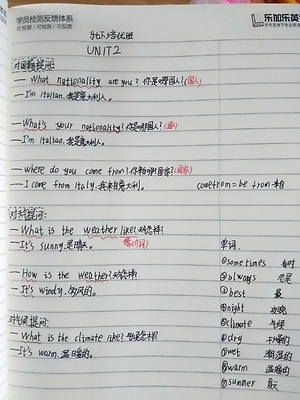 学员检测反馈体系
可预期 / 可检测 / 可反馈
乐加乐英
UNIT2
对国籍提问:
— What nationality are you? 你是哪国人? (国人)
— I'm Italian. 我是意大利人.
— What's your nationality? 你是哪国人? (国)
— I'm Italian. 我是意大利人.
— where do you come from? 你来自哪个国家? (国家)
— I come from Italy. 我来自意大利. come from = be from 来自
对天气提问:
— What is the weather like? 天气怎样?
— It's sunny. 是晴天.
— How is the weather? 天气怎样?
— It's windy. 多风的.
对气候提问:
— What is the climate like? 气候怎样?
— It's warm. 温暖的.
单词:
① sometimes 有时
② always 总是
③ best 最
④ night 夜晚
⑤ climate 气候
⑥ dry 干燥的
⑦ wet 潮湿的
⑧ warm 温暖的
⑨ summer 夏天